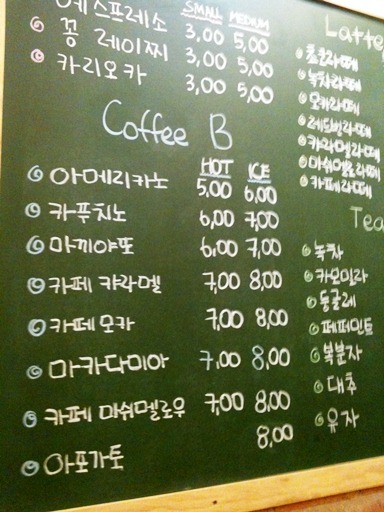 SMALL MEDIUM
에스프레소 3,00 5,00
꽁 레이찌 3,00 5,00
카리오카 3,00 5,00
Coffee B
HOT ICE
아메리카노 5,00 6,00
카푸치노 6,00 7,00
마끼야또 6,00 7,00
카페 카라멜 7,00 8,00
카페모카 7,00 8,00
마카다미아 7,00 8,00
카페 마쉬멜로우 7,00 8,00
아포가토 8,00
Latte
초코라떼
녹차라떼
모카라떼
레드빈라떼
카라멜라떼
마쉬멜로라떼
카페라떼
Tea
녹차
카모미라
둥굴레
페퍼민트
복분자
대추
유자